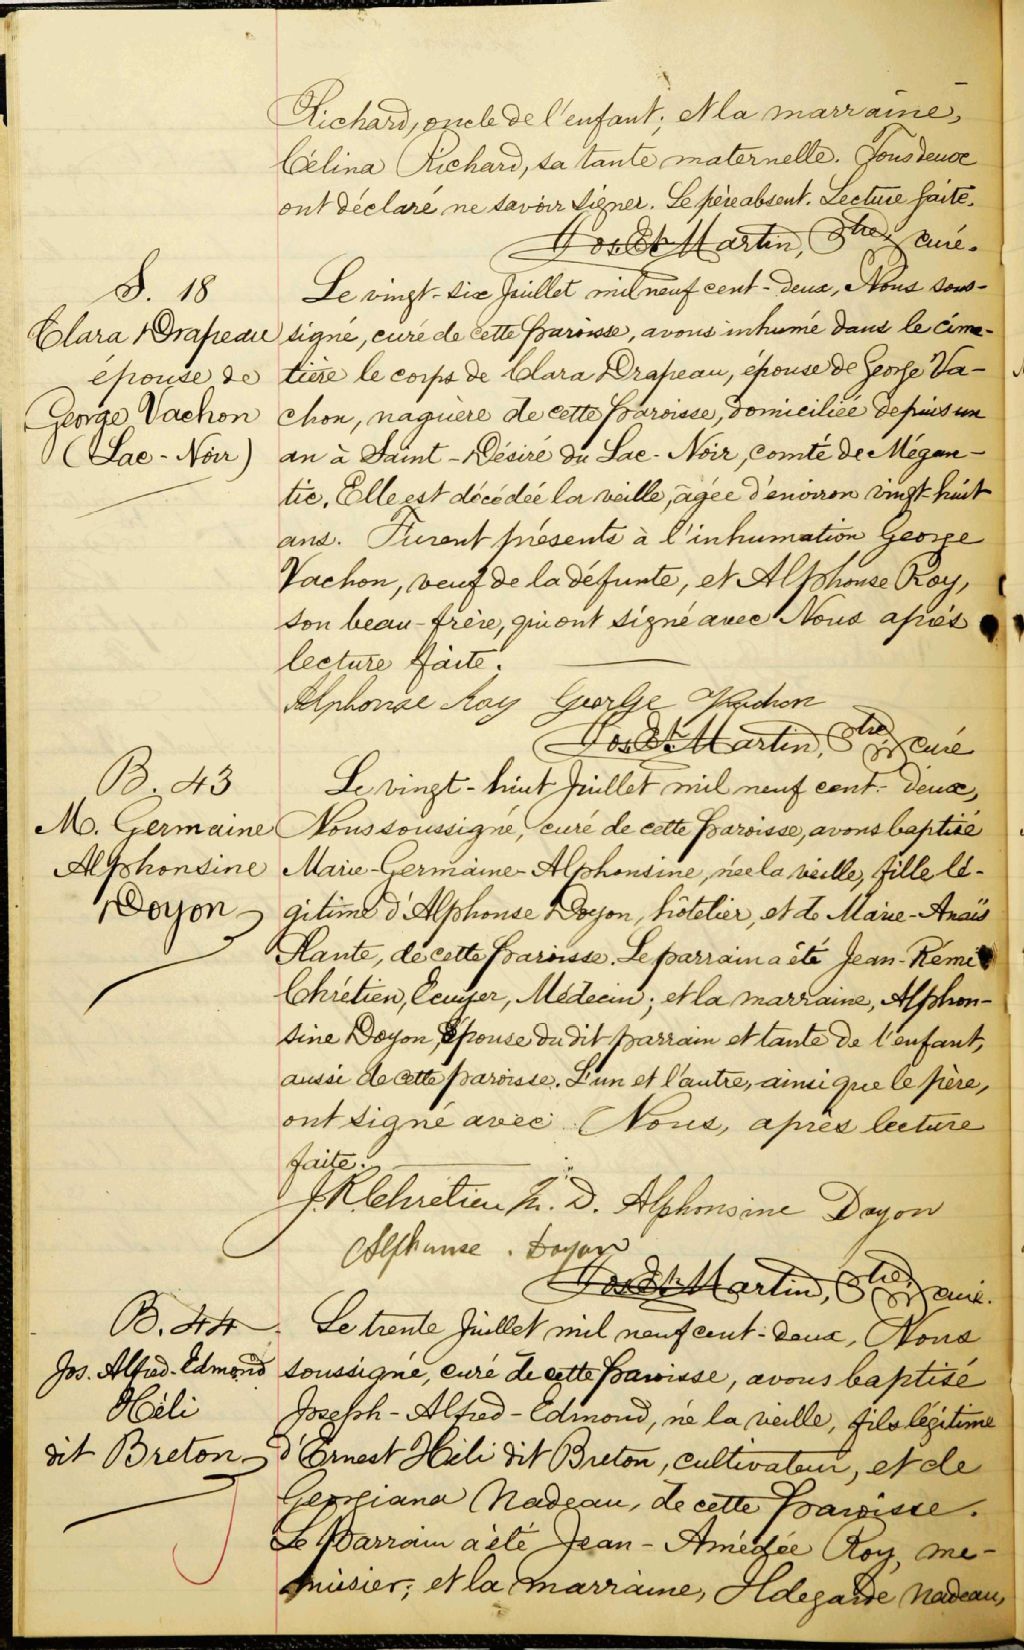 Richard, oncle de l'enfant; et la marraine,
Célina Richard, sa tante maternelle. Tous deux
ont déclaré ne savoir signer. Le père absent. Lecture faite.
Jos. Et. Martin, Ptre, curé.
S. 18
Clara Drapeau
épouse de
George Vachon
(Lac-Noir)
Le vingt-six Juillet mil neuf cent-deux, Nous sous-
signé, curé de cette paroisse, avons inhumé dans le cime-
tière le corps de Clara Drapeau, épouse de George Va-
chon, naguère de cette paroisse, domiciliée depuis un
an à Saint-Désiré du Lac-Noir, comté de Mégan-
tic. Elle est décédée la veille, âgée d'environ vingt-huit
ans. Furent présents à l'inhumation George
Vachon, veuf de la défunte, et Alphonse Roy,
son beau-frère, qui ont signé avec Nous après
lecture faite.
Alphonse Roy George Vachon
Jos. Et. Martin, Ptre, curé
B. 43
M. Germaine
Alphonsine
Doyon
Le vingt-huit Juillet mil neuf cent-deux,
Nous soussigné, curé de cette paroisse, avons baptisé
Marie-Germaine-Alphonsine, née la veille, fille lé-
gitime d'Alphonse Doyon, hôtelier, et de Marie-Anaïs
Plante, de cette paroisse. Le parrain a été Jean-Rémi
Chrétien, Ecuyer, Médecin; et la marraine, Alphon-
sine Doyon, épouse du dit parrain et tante de l'enfant,
aussi de cette paroisse. L'un et l'autre, ainsi que le père,
ont signé avec Nous, après lecture
faite.
J. R. Chretien M. D. Alphonsine Doyon
Alphonse Doyon
Jos. Et. Martin, Ptre, curé.
B. 44
Jos. Alfred-Edmond
Héli
dit Breton
Le trente Juillet mil neuf cent-deux, Nous
soussigné, curé de cette paroisse, avons baptisé
Joseph-Alfred-Edmond, né la veille, fils légitime
d'Ernest Héli dit Breton, cultivateur, et de
Georgiana Nadeau, de cette paroisse.
Le Parrain a été Jean-Amédée Roy, me-
nuisier; et la marraine, Hdegarde Nadeau,